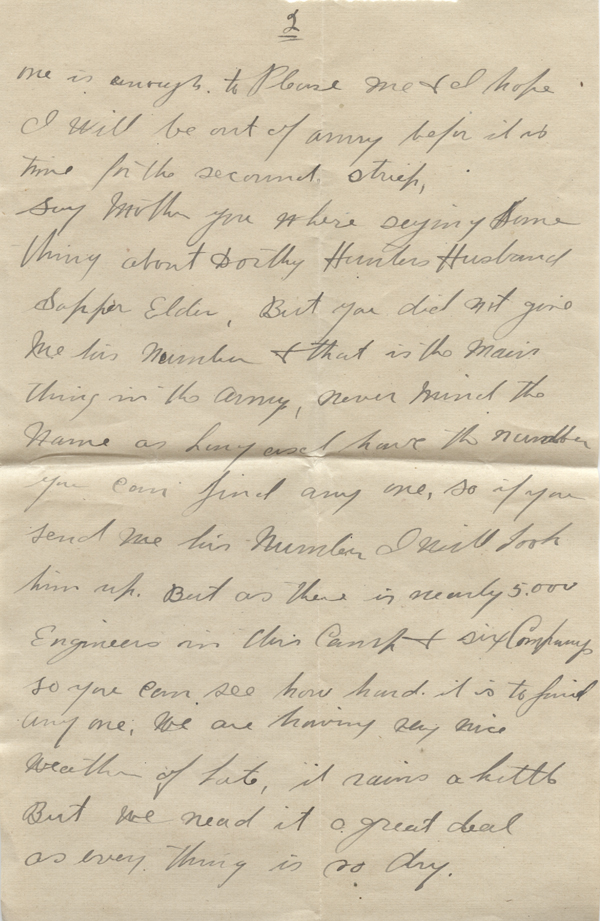 2
one is enough. to Please me & I hope
I Will be out of army befor it is
time for the secound. strip,
Say Mother you where saying Some
thing about Dorthy Hunters Husband
Sapper Elder, But you did not give
Me his Number & that is the Main
thing in the Army, never Mind the
Name as long as I have the number
you can find any one, so if you
send Me his Number I Will Look
him up. But as there is nearly 5.000
Engineers in this Camp & six Companys
so you can see how hard. it is to find
any one, We are having very nice
Weather of Late, it rains a little
But We nead it a great deal
as every thing is so dry.